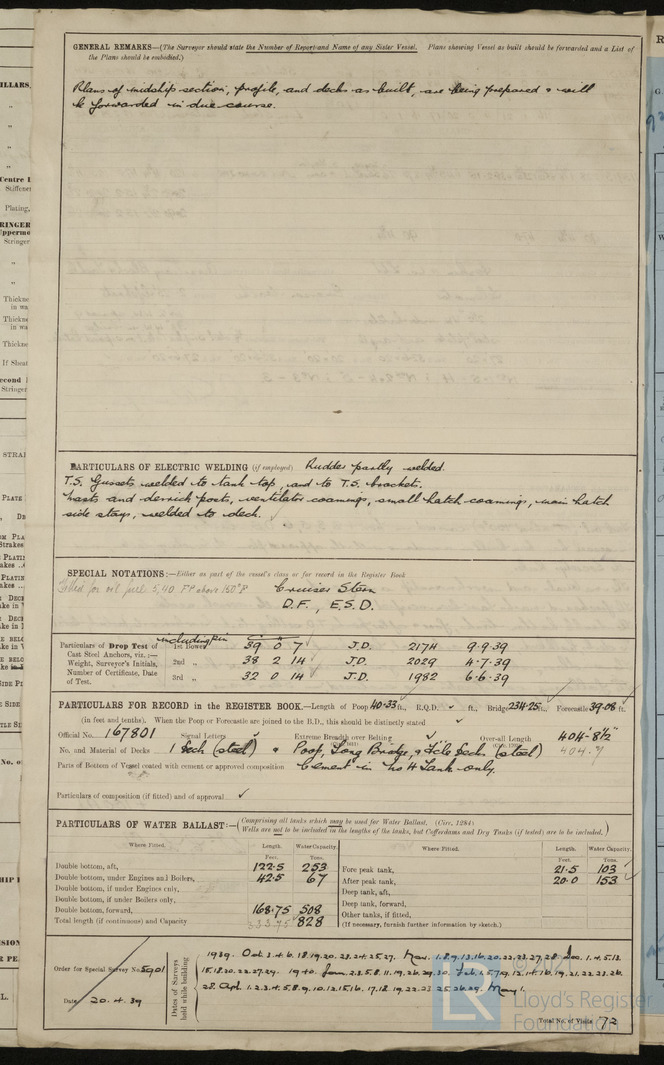 GENERAL REMARKS—(The Surveyor should state the Number of Report and Name of any Sister Vessel. Plans showing Vessel as built should be forwarded and a List of
the Plans should be embodied.)
Plans of midship section, profile, and decks as built, are being prepared & will
be forwarded in due course.
PARTICULARS OF ELECTRIC WELDING (if employed) Rudder partly welded.
T.S. Gussets welded to tank top, and to T.S. brackets.
Masts and derrick posts, ventilator coamings, small hatch coamings, main hatch
side stays, welded to deck.
SPECIAL NOTATIONS:—Either as part of the vessel's class or for record in the Register Book
Fitted for oil fuel 5,40 F.P. above 150°F Cruiser Stern
D.F., E.S.D.
Particulars of Drop Test of including pin 1st Bower 39 0 7 J.D. 2174 9.9.39
Cast Steel Anchors, viz.:—
Weight, Surveyor's Initials, 2nd „ 38 2 14 J.D. 2029 4.7.39
Number of Certificate, Date
of Test. 3rd „ 32 0 14 J.D. 1982 6.6.39
PARTICULARS FOR RECORD in the REGISTER BOOK.—Length of Poop 40.33 ft., R.Q.D. ✓ ft., Bridge 234.25 ft., Forecastle 39.08 ft.
(in feet and tenths). When the Poop or Forecastle are joined to the B.D., this should be distinctly stated ✓
Official No. 167801 Signal Letters Extreme Breadth over Belting ✓ Over-all Length 404'-8½"
No. and Material of Decks 1 Deck (steel) & Poop, Long Bridge, & F'cle Deck (steel) 404.7
Parts of Bottom of Vessel coated with cement or approved composition Cement in No 4 Tank only.
Particulars of composition (if fitted) and of approval ✓
PARTICULARS OF WATER BALLAST:—(Comprising all tanks which may be used for Water Ballast. (Circ. 1284)
Wells are not to be included in the lengths of the tanks, but Cofferdams and Dry Tanks (if tested) are to be included.)
Where Fitted. Length. Water Capacity. Where Fitted. Length. Water Capacity.
Feet. Tons. Feet. Tons.
Double bottom, aft, 122.5 253 Fore peak tank, 21.5 103
Double bottom, under Engines and Boilers, 42.5 67 After peak tank, 20.0 153
Double bottom, if under Engines only, Deep tank, aft,
Double bottom, if under Boilers only, Deep tank, forward,
Double bottom, forward, 168.75 508 Other tanks, if fitted,
Total length (if continuous) and Capacity 333.75 828 (If necessary, furnish further information by sketch.)
Order for Special Survey No. 5901
Date 20.4.39
Dates of Surveys held while building
1939. Oct. 3.4.6.18.19.20.23.24.25.27. Nov. 1.8.9.13.16.20.22.23.27.28 Dec. 1.4.5.13.
15.18.20.22.27.29. 1940. Jan. 2.3.5.8.11.19.26.29.30. Feb. 1.5.7.9.12.14.16.19.21.22.23.26.
28. Apl. 1.2.3.4.5.8.9.10.12.15.16.17.18.19.22.23.25.26.29. May 1.
Total No. of Visits 72
Lloyd's Register
Foundation